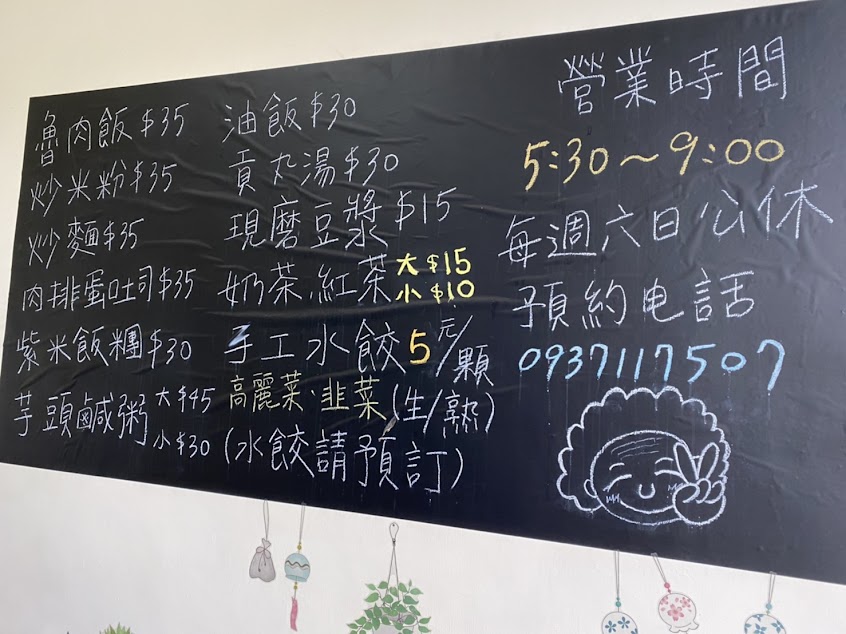 魯肉飯$35
炒米粉$35
炒麵$35
肉排蛋吐司$35
紫米飯糰$30
芋頭鹹粥 大$45
小$30
油飯$30
貢丸湯$30
現磨豆漿$15
奶茶.紅茶 大$15
小$10
手工水餃5元/顆
高麗菜·韭菜(生/熟)
(水餃請預訂)
營業時間
5:30~9:00
每週六日公休
預約电話
0937117507